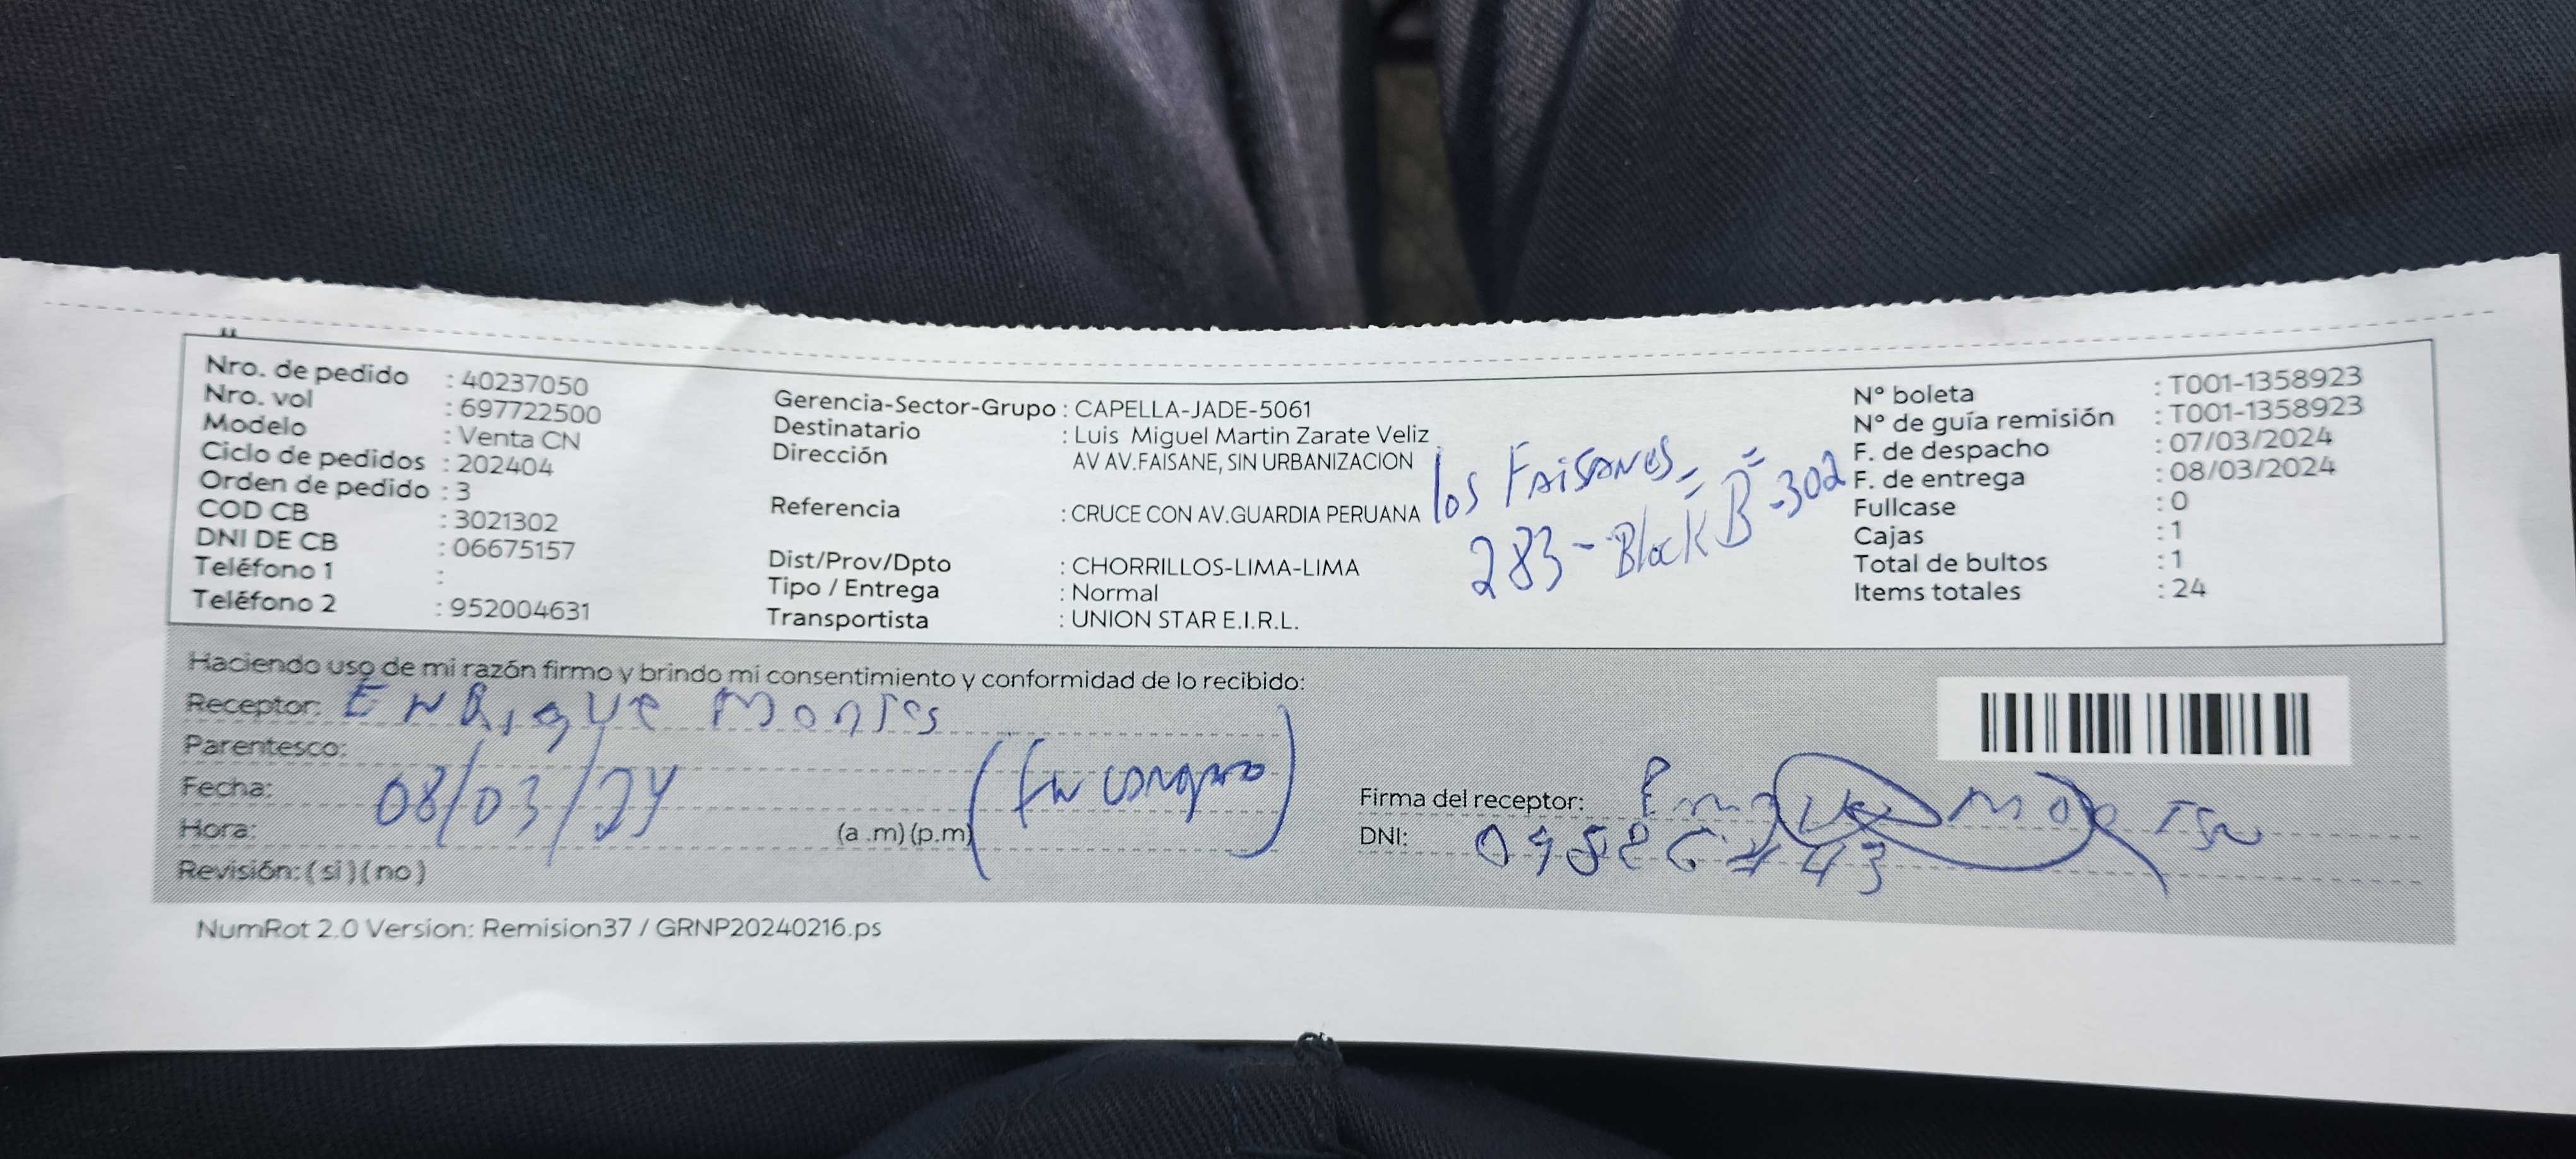 Nro. de pedido : 40237050
Nro. vol : 697722500
Modelo : Venta CN
Ciclo de pedidos : 202404
Orden de pedido : 3
COD CB : 3021302
DNI DE CB : 06675157
Teléfono 1 :
Teléfono 2 : 952004631
Gerencia-Sector-Grupo : CAPELLA-JADE-5061
Destinatario : Luis Miguel Martin Zarate Veliz
Dirección AV AV.FAISANE, SIN URBANIZACION
Referencia : CRUCE CON AV.GUARDIA PERUANA
Dist/Prov/Dpto : CHORRILLOS-LIMA-LIMA
Tipo / Entrega : Normal
Transportista : UNION STAR E.I.R.L.
los Faisanes
283 - Block B - 302
N° boleta : T001-1358923
N° de guía remisión : T001-1358923
F. de despacho : 07/03/2024
F. de entrega : 08/03/2024
Fullcase : 0
Cajas : 1
Total de bultos : 1
Items totales : 24
Haciendo uso de mi razón firmo y brindo mi consentimiento y conformidad de lo recibido:
Receptor: Enrique
Parentesco:
Fecha: 08/03/24
Hora: (a .m) (p.m)
Revisión: ( si ) ( no )
Firma del receptor:
DNI:
NumRot 2.0 Version: Remision37 / GRNP20240216.ps